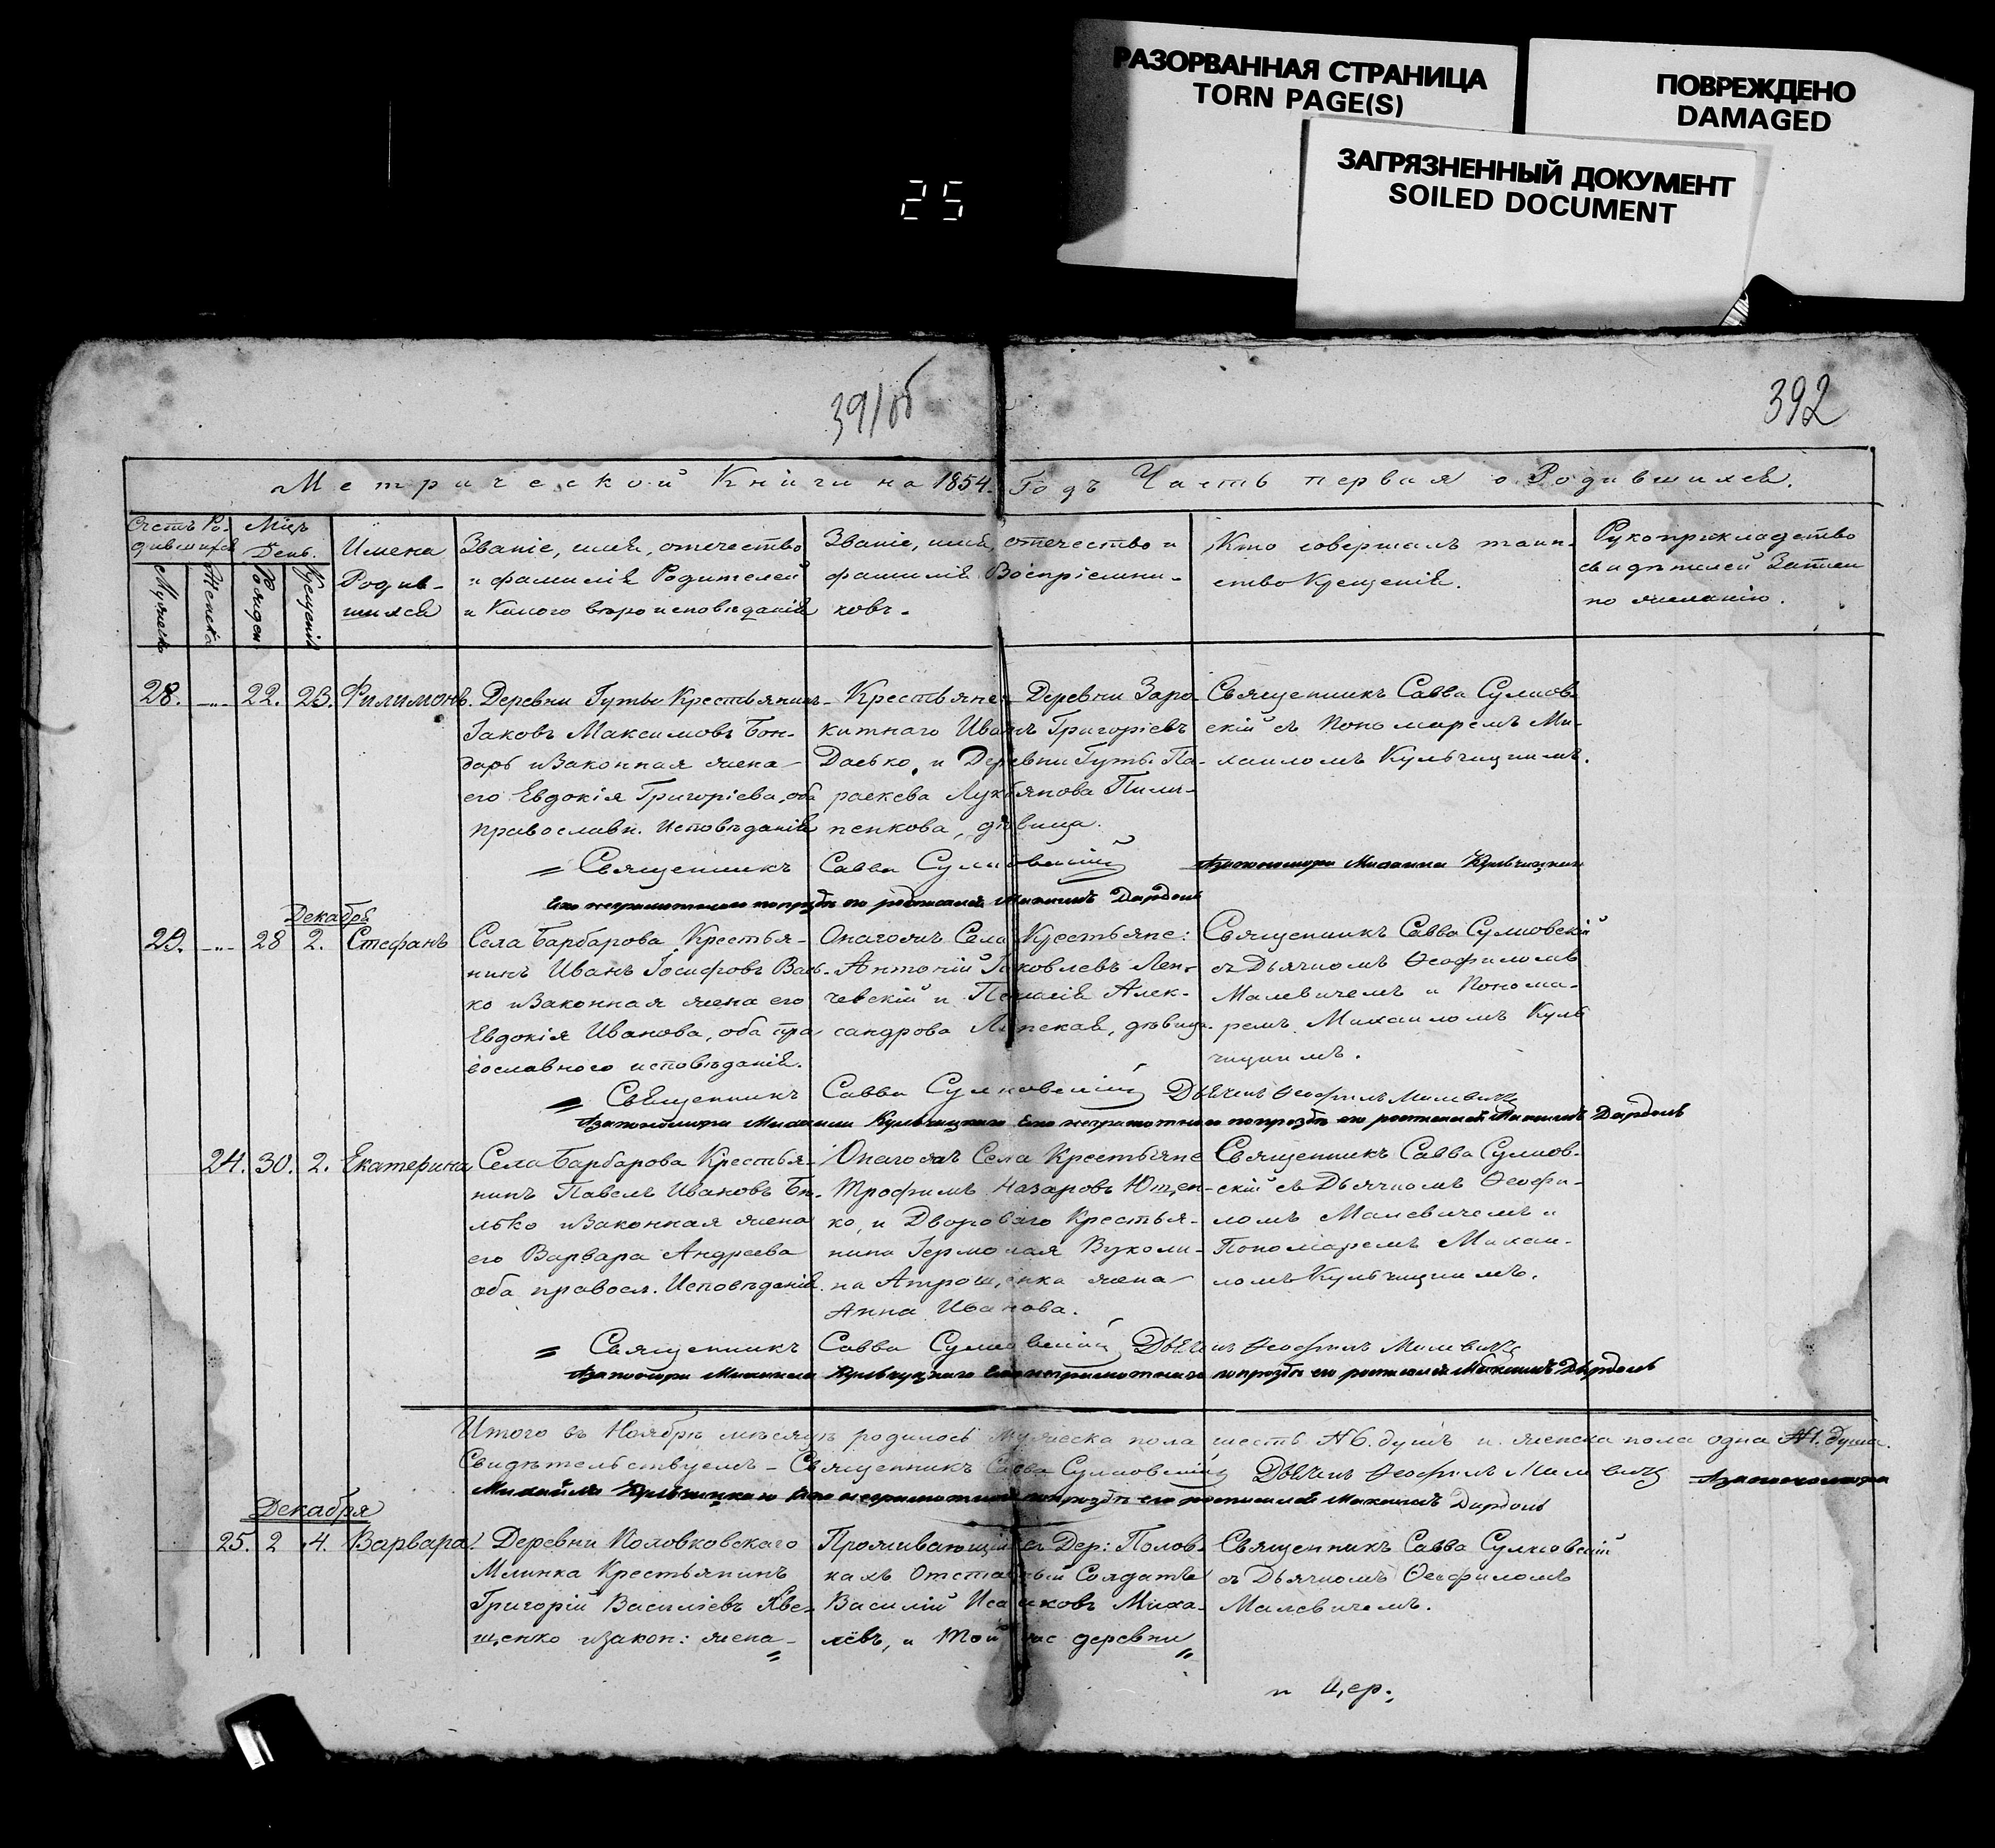 РАЗОРВАННАЯ СТРАНИЦА
TORN PAGE(S)
ПОВРЕЖДЕНО
DAMAGED
ЗАГРЯЗНЕННЫЙ ДОКУМЕНТ
SOILED DOCUMENT
25
391об
392
Метрической Книги на 1854. Годъ Часть первая о Родившихся.
Счетъ Ро-
дившихся
Мужеска
Женска
Мцъ
День.
Рожден
Крещенія
Имена
Родив-
шихся
Званіе, имя, отечество
и фамилія Родителей
и Какого вѣроисповѣданія
Званіе, имя, отечество и
фамилія Воспріемни-
ковъ.
Кто совершалъ таин-
ство Крещенія.
Рукоприкладство
свидѣтелей Записи
по желанію.
28. -"- 22. 23. Филимонъ.
Деревни Гуты Крестьянинъ
Іаковъ Максимовъ Бон-
дарь и Законная жена
его Евдокія Григоріева, оба
православн. Исповѣданія
Крестьяне Деревни Заро-
китнаго Иванъ Григоріевъ
Дасько, и Деревни Гуты Па-
раскева Лукьянова Пили-
пенкова, дѣвица.
Священникъ Савва Сулков-
скій съ Пономаремъ Ми-
хаиломъ Кульчицкимъ.
Священникъ Савва Сулковскій
Его неграмотнаго попрозбѣ его росписался Максимъ Дардоль
Декабря
29. -"- 28 2. Стефанъ
Села Барбарова Крестья-
нинъ Иванъ Іосифовъ Вась-
ко и Законная жена его
Евдокія Иванова, оба пра
вославного исповѣданія.
Онагожъ Села Крестьяне:
Антоній Іаковлевъ Лен-
чевскій и Пелагія Алек-
сандрова Липская, дѣвица.
Священникъ Савва Сулковскій
съ Дьячкомъ Ѳеофиломъ
Малевичемъ и Понома-
ремъ Михаиломъ Куль
чицкимъ.
Священникъ Савва Сулковскій Дьячекъ Ѳеофилъ Малевичъ
Азапономара Михаила Кульчицкаго Его неграмотнаго попрозбѣ его росписался Максимъ Дардоль
24. 30. 2. Екатерина
Села Барбарова Крестья-
нинъ Павелъ Ивановъ Би-
лько и Законная жена
его Варвара Андреева
оба правосл. Исповѣданія.
Онагожъ Села Крестьяне
Трофимъ Назаровъ Ющен-
ко, и Двороваго Крестья-
нина Іермолая Вуколи-
на Атрощенка жена
Анна Иванова.
Священникъ Савва Сулков-
скій съ Дьячкомъ Ѳеофи-
ломъ Малевичемъ и
Пономаремъ Михаи-
ломъ Кульчицкимъ.
Священникъ Савва Сулковскій Дьячекъ Ѳеофилъ Малевичъ
Азапономара Михаила Кульчуцкаго Его неграмотнаго попрозбѣ его росписался Максимъ Дардоль
Итого въ Ноябрѣ мѣсяцѣ родилось Мужеска пола шесть №6. душъ и женска пола одна №1. душа.
Свидѣтельствуемъ - Священникъ Савва Сулковскій Дьячекъ Ѳеофилъ Малевичъ Азапономара
Михайла Кульчицкаго Его неграмотнаго попрозбѣ его росписался Максимъ Дардоль
Декабря
25. 2 4. Варвара
Деревни Половковскаго
Млинка Крестьянинъ
Григорій Василіевъ Яве-
щенко и Закон: жена
Проживающій въ Дер: Полов-
кахъ Отставный Солдатъ
Василій Исааковъ Миха-
лёвъ, и Той же деревни
Священникъ Савва Сулковскій
съ Дьячкомъ Ѳеофиломъ
Малевичемъ.